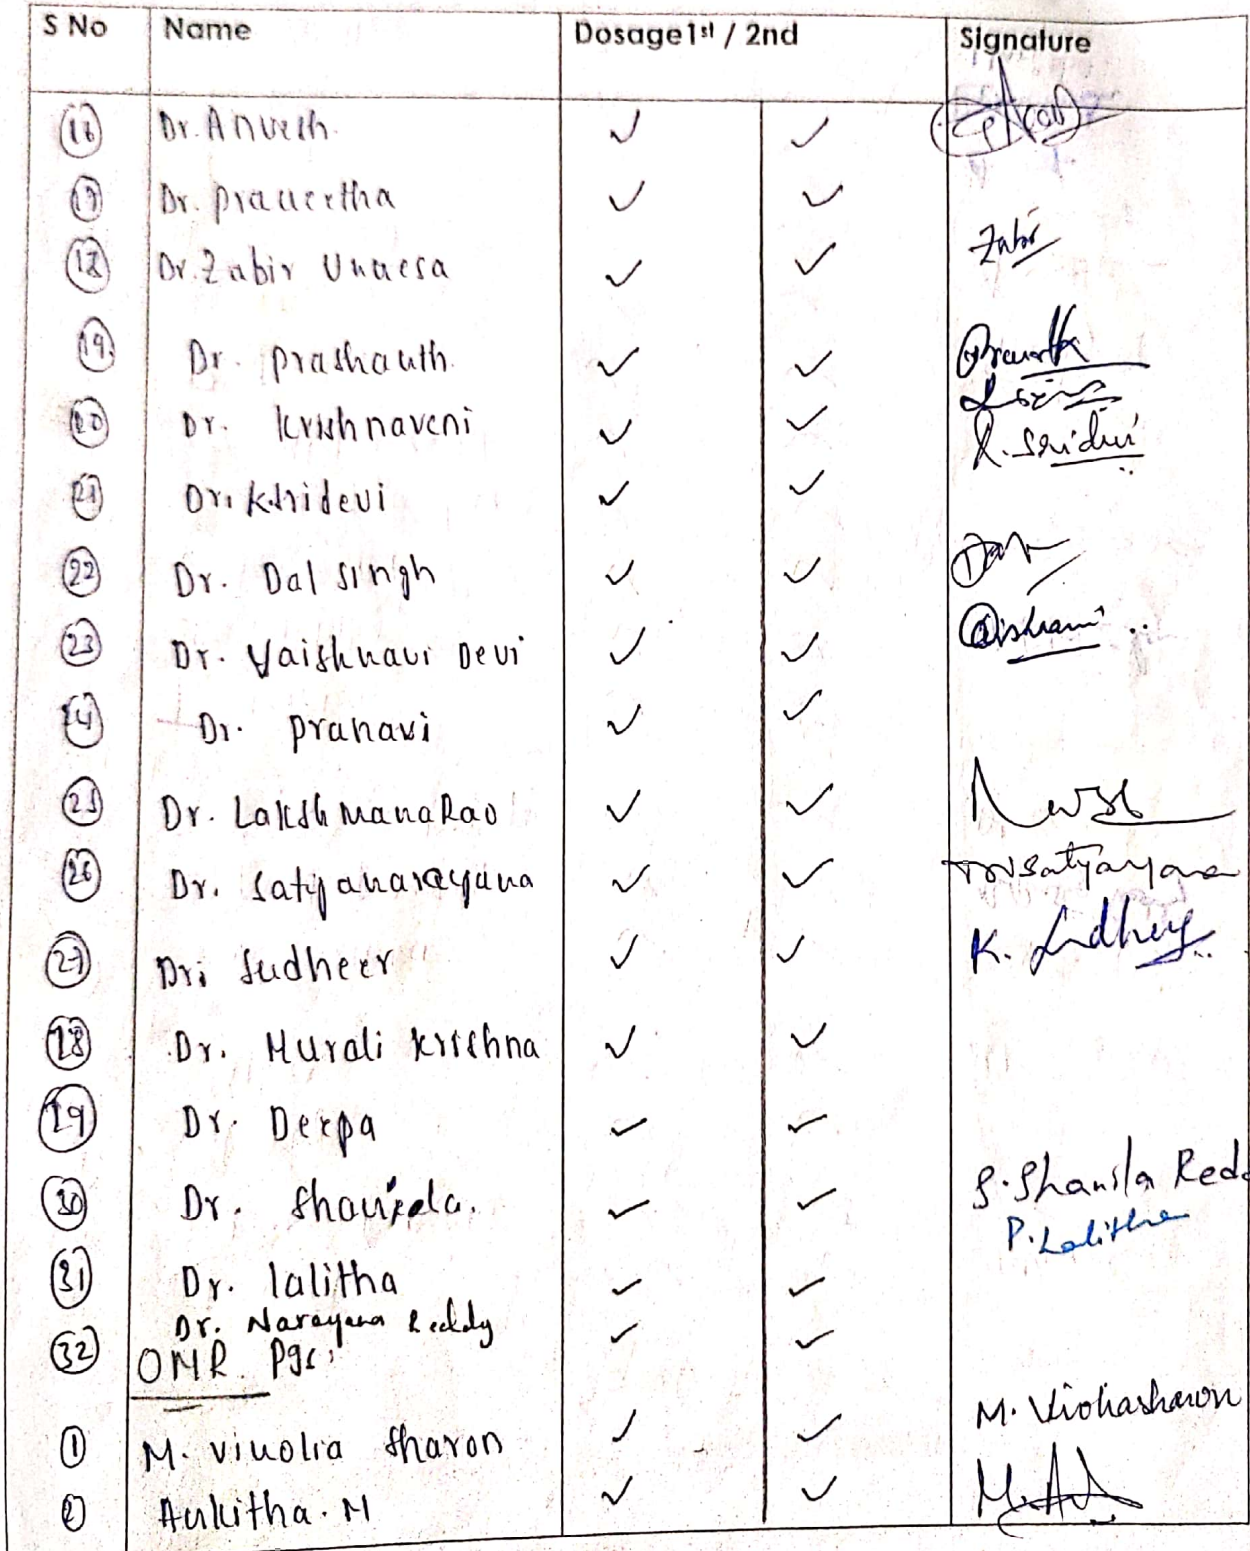 S No Name Dosage 1st / 2nd Signature
16 Dr. Anvesh ✓ ✓
17 Dr. Praneetha ✓ ✓
18 Dr. Zabir Unnesa ✓ ✓ Zabir
19. Dr. Prashanth. ✓ ✓
20 Dr. Krishnaveni ✓ ✓
21 Dr. K. Sridevi ✓ ✓ K. Sridevi
22 Dr. Dal Singh ✓ ✓
23 Dr. Vaishnavi Devi ✓ ✓
24 Dr. Pranavi ✓ ✓
25 Dr. Lakshmana Rao ✓ ✓
26 Dr. Satyanarayana ✓ ✓
27 Dr. Sudheer ✓ ✓ K. Sudheer
28 Dr. Murali Krishna ✓ ✓
29 Dr. Deepa ✓ ✓
30 Dr. ✓ ✓
31 Dr. lalitha ✓ ✓ P. Lalitha
Dr. Narayana Reddy ✓ ✓
32 OMR Pgs:
1 M. Vinolia Sharon ✓ ✓ M. Vinoliasharon
2 Ankitha. M ✓ ✓